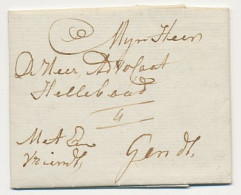 Mijn Heer
d'Heer Advocaat
Hellebaad
4
Met Een
vriendt
Gendt